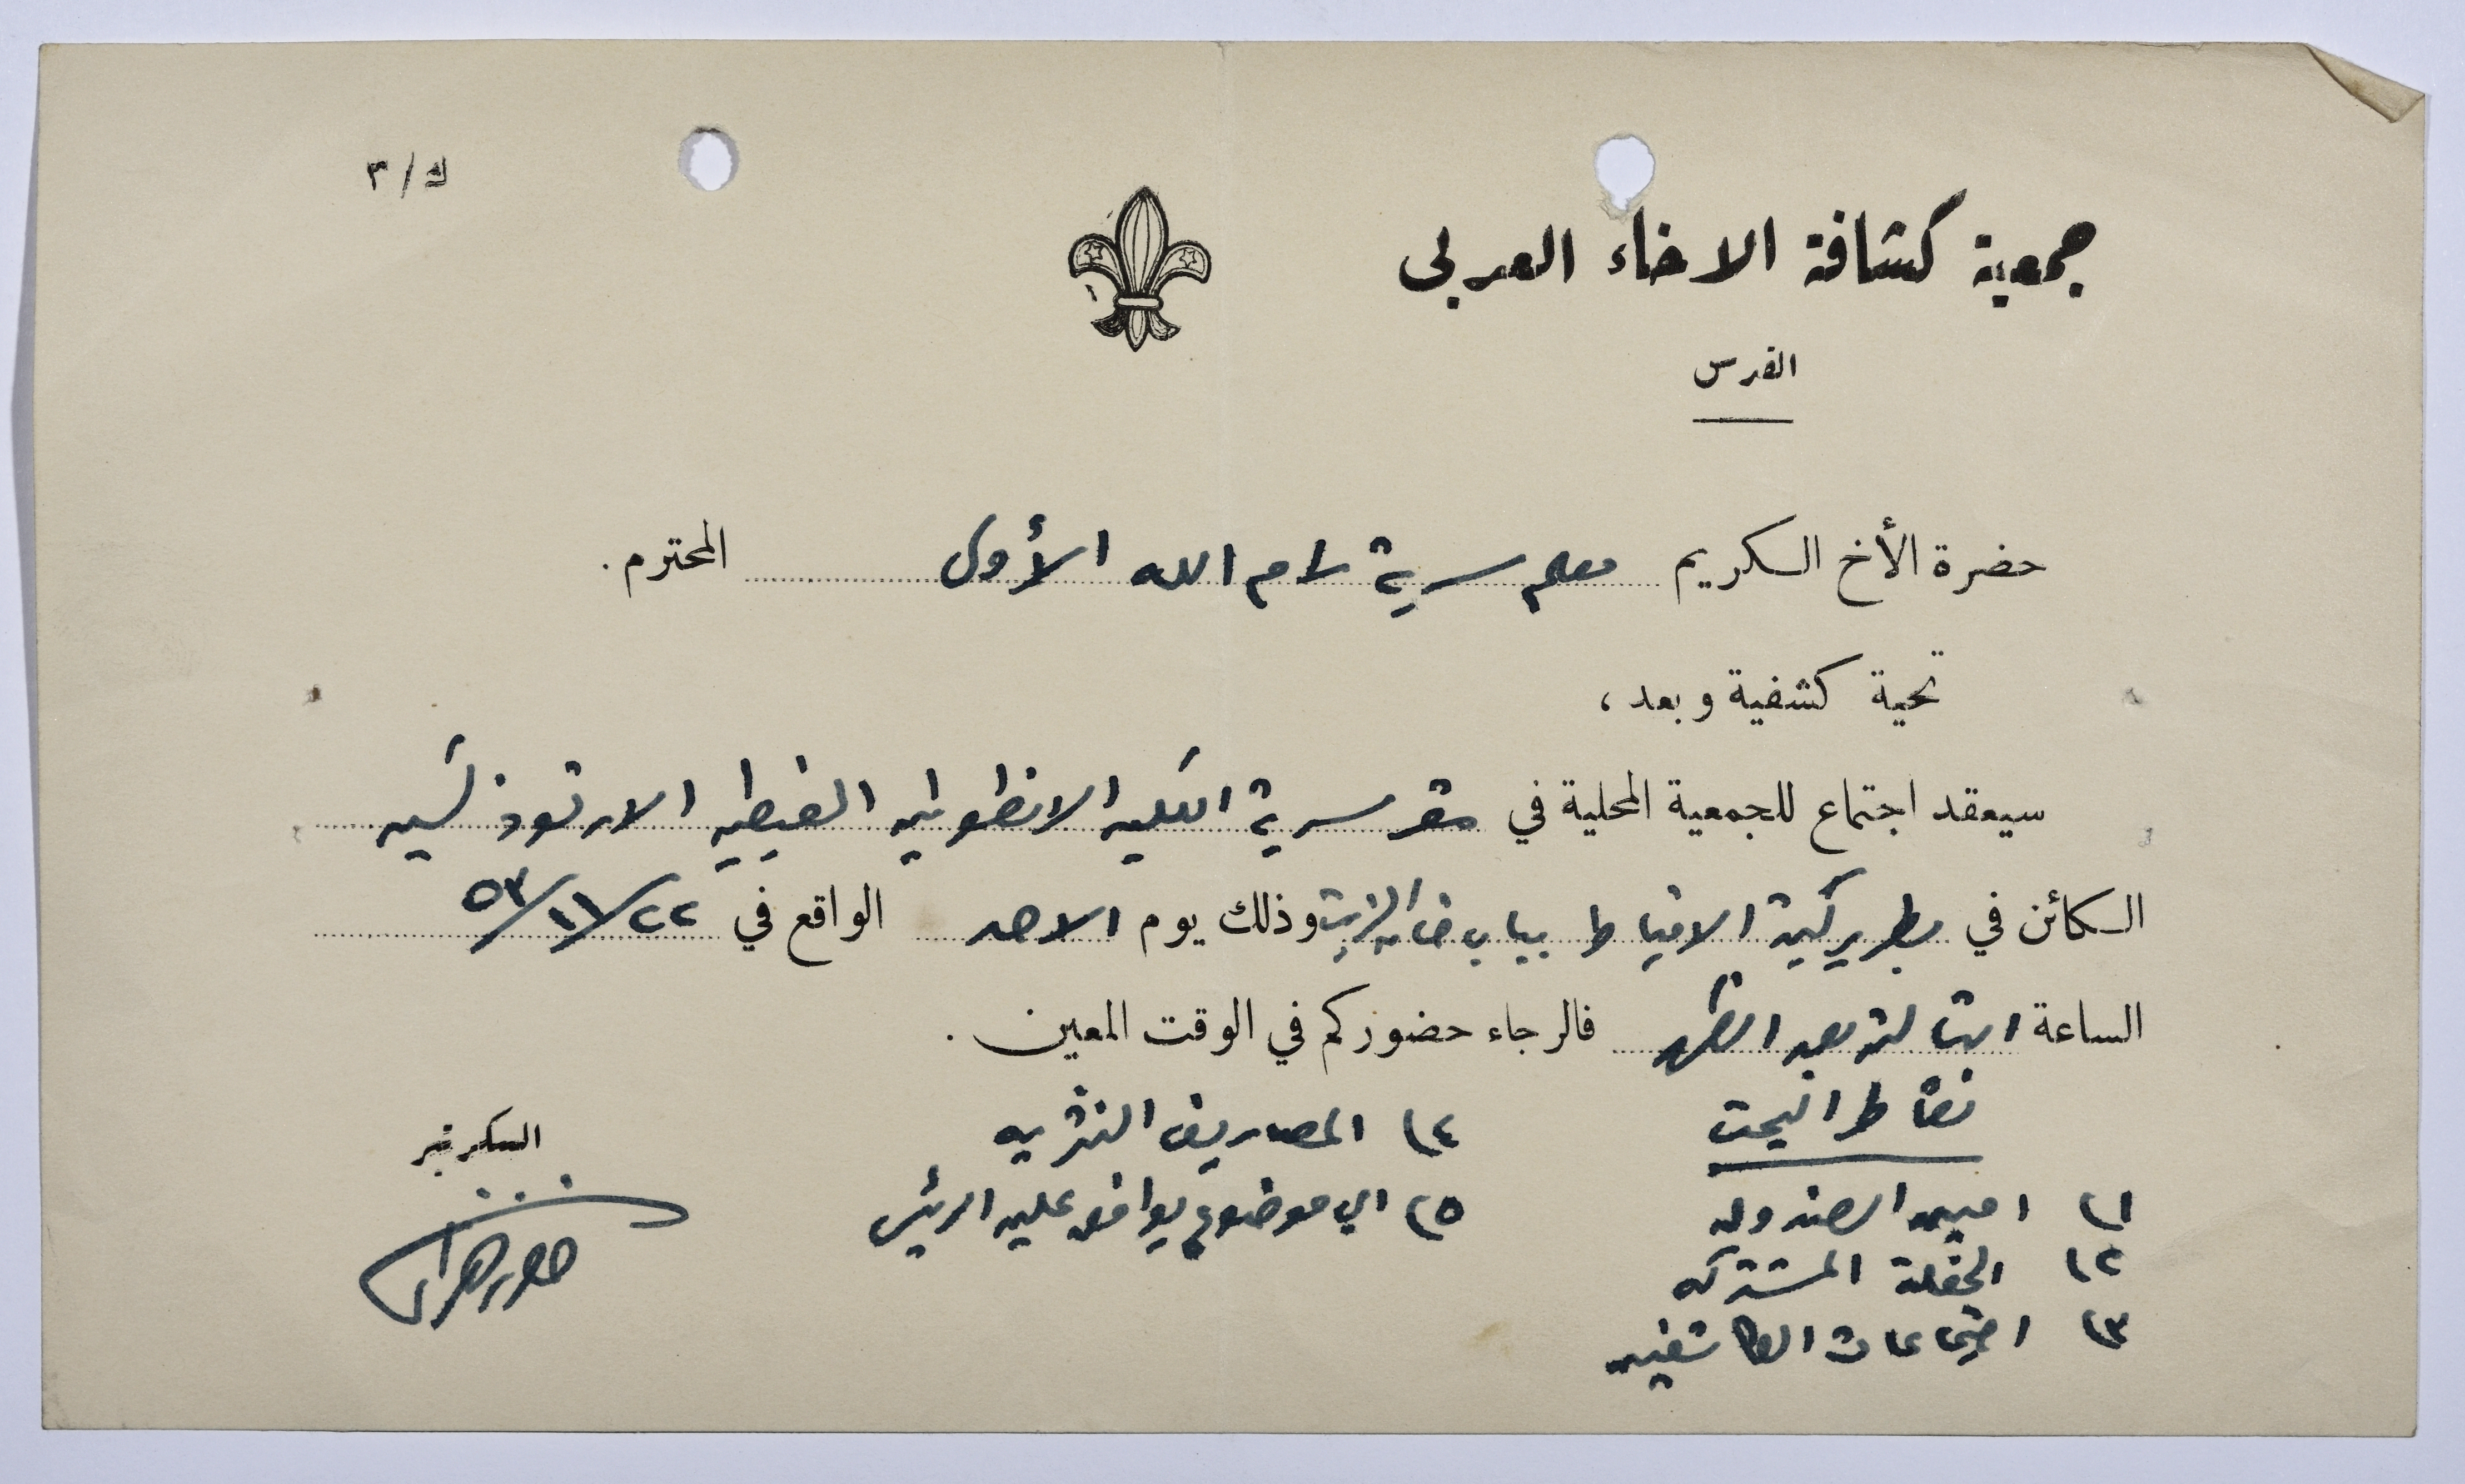 ك/٣
جمعية كشافة الاخاء العربي
القدس
حضرة الأخ الكريم معلم سرية رام الله الأولى المحترم.
تحية كشفية وبعد،
سيعقد اجتماع للجمعية المحلية في مقر سرية الكلية الانطونيه القبطيه الارثوذكسيه
الكائن في بطريركية الاقباط بباب خان الزيت وذلك يوم الاحد الواقع في ٢٢/١١/٥٣
الساعة الثالثة بعد الظهر فالرجاء حضوركم في الوقت المعين.
نقاط البحث
١) امين الصندوق
٢) الحفلة المشتركه
٣) اجتماعات الكاشفين
٤) المصاريف النثريه
٥) اي موضوع يوافق عليه الرئيس
السكرتير